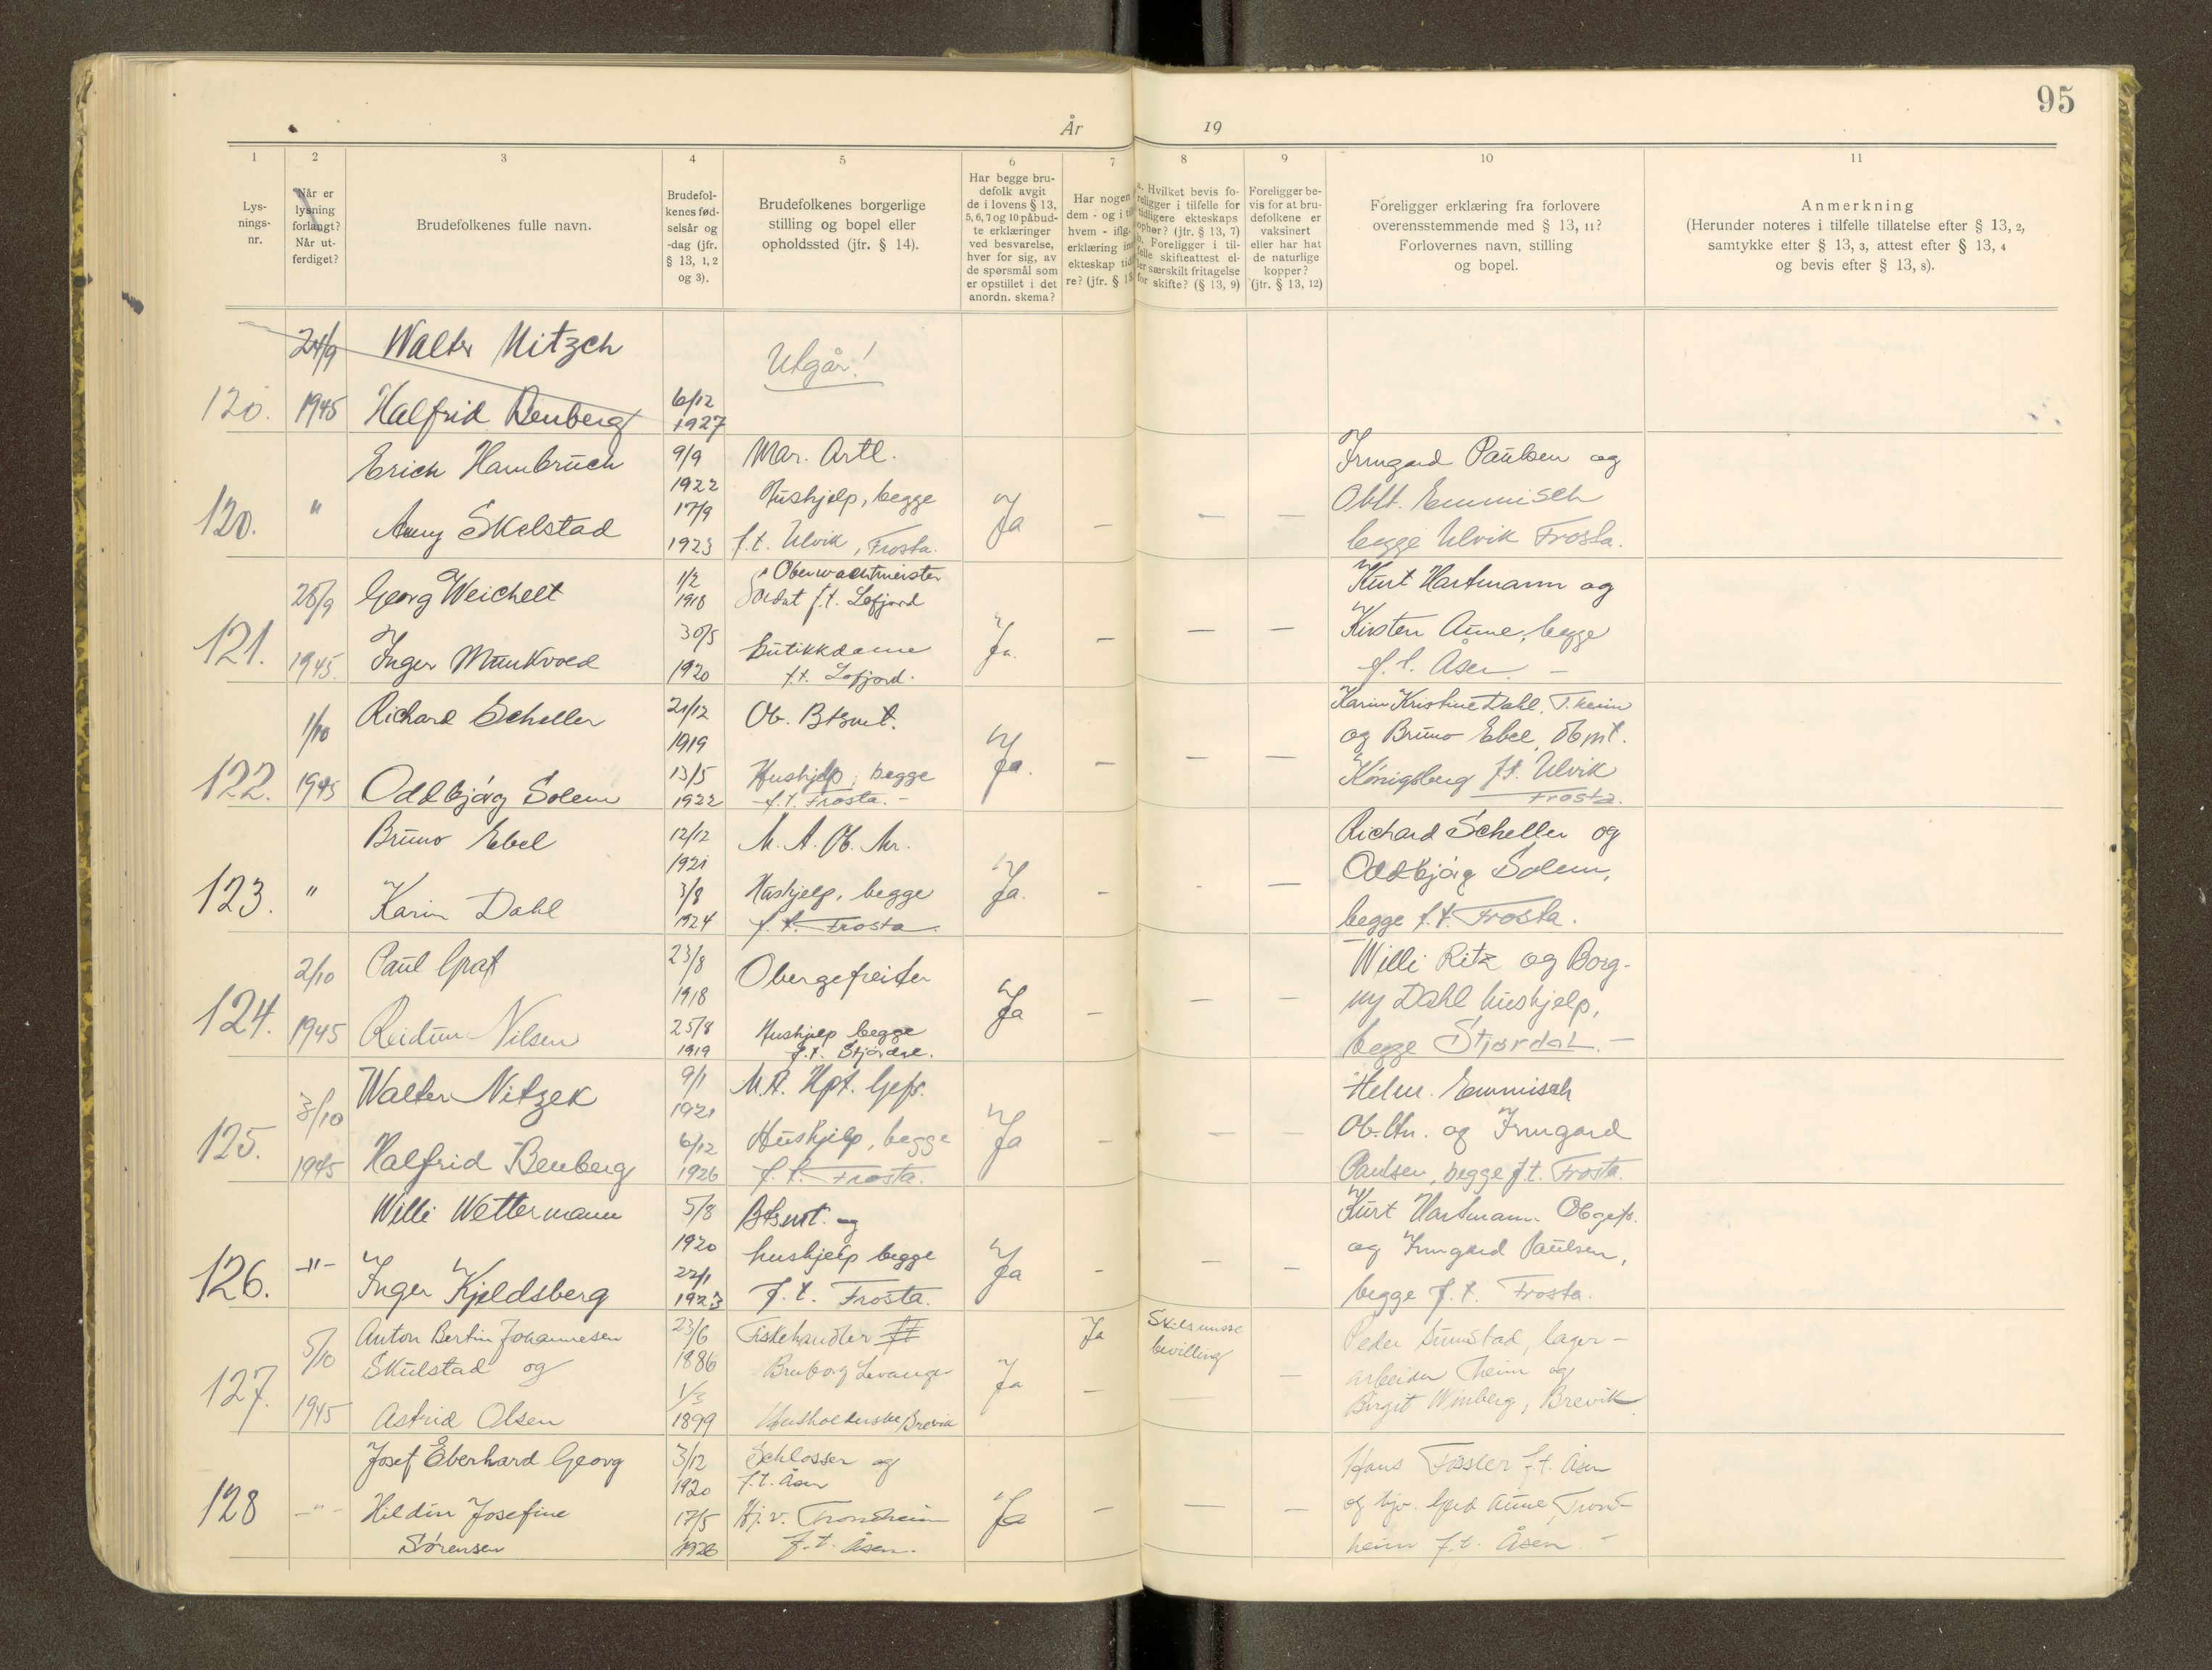 95
År 19
1 2 3 4 5 6 7 8 9 10 11
Lys-
nings-
nr.
Når er
lysning
forlangt?
Når ut-
ferdiget?
Brudefolkenes fulle navn.
Brudefol-
kenes fød-
selsår og
-dag (jfr.
§ 13, 1, 2
og 3).
Brudefolkenes borgerlige
stilling og bopel eller
opholdssted (jfr. § 14).
Har begge bru-
defolk avgit
de i lovens § 13,
5, 6, 7 og 10 påbud-
te erklæringer
ved besvarelse,
hver for sig, av
de spørsmål som
er opstillet i det
anordn. skema?
Har nogen
dem - og i
hvem - iflg.
erklæring
ekteskap
re? (jfr. §
a. Hvilket bevis fo-
religger i tilfelle for
tidligere ekteskaps
ophør? (jfr. § 13, 7)
b. Foreligger i til-
felle skifteattest el-
ler særskilt fritagelse
for skifte? (§ 13, 9)
Foreligger be-
vis for at bru-
defolkene er
vaksinert
eller har hat
de naturlige
kopper?
(jfr. § 13, 12)
Foreligger erklæring fra forlovere
overensstemmende med § 13, 11?
Forlovernes navn, stilling
og bopel.
Anmerkning
(Herunder noteres i tilfelle tillatelse efter § 13, 2,
samtykke efter § 13, 3, attest efter § 13, 4
og bevis efter § 13, 8).
24/9 Walter Nitzch
Utgår!
120. 1945 Halfrid Benberg 6/12
1927
Erich Hambruch 9/9 Mar. Artl. Irmgard Paulsen og
1922
120. " Hushjelp, begge Ja - - - Oblt. Emmisch
Anny Skelstad 17/9
1923 f.t. Ulvik, Frosta. begge Ulvik Frosta.
28/9 Georg Weichelt 1/2 Oberwachtmeister Kurt Hartmann og
1918 Soldat f.t. Lofjord
121. 30/5 Ja. - - - Kirsten Aune, begge
1945. Inger Munkvold Butikkdame
1920 f.t. Lofjord. f.t. Åsen. -
Richard Scheller 21/12 Ob. Btsmt. Karin Kristine Dahl. T.heim
1/10 1919 og Bruno Ebel, Obmt.
122. 13/5 Hushjelp, begge Ja. - - - Königsberg f.t. Ulvik
1945 Oddbjörg Solem 1922 f.t. Frosta. - Frosta.
Bruno Ebel 12/12 M. A. Ob. Mr. Richard Scheller og
1921
123. " 3/8 Hushjelp, begge Ja. - - - Oddbjörg Solem,
Karin Dahl 1924 f.t. Frosta. begge f.t. Frosta.
2/10 Paul Graf 23/8 Obergefreiter Willi Ritz og Borg-
1918
124. Ja - - - ny Dahl hushjelp,
1945 Reidun Nilsen 25/8 Hushjelp begge
1919 f.t. Stjørdal. begge Stjørdal. -
Walter Nitzek 9/1 M.A. Hpt. Gefr. Helm. Emmisch
3/10 1921
125. 6/12 Hushjelp, begge Ja - - - Ob. ltn. og Irmgard
1945 Halfrid Benberg 1926 f.t. Frosta. Paulsen, begge f.t. Frosta.
Willi Wettermann 5/8 Btsmt. og Kurt Hartmann Obgefr.
1920
126. -"- hushjelp begge Ja - - - og Irmgard Paulsen,
Inger Kjeldsberg 22/1
1923 f.t. Frosta. begge f.t. Frosta.
5/10 Anton Bertin Johannesen 23/6 Fiskehandler Ja Skilsmisse Peder Sunstad, lager-
Skulstad og 1886 Bruborg Levanger bevilling
127. 1/3 Ja - - - arbeider Theim og
1945 Astrid Olsen 1899 Husholderske Brevik Birgit Winberg, Brevik
Josef Eberhard Georg 3/12 Schlosser og Hans Fässler f.t. Åsen
1920 f.t. Åsen
128 -"- Hildur Josefine 17/5 Hj. v. Trondheim Ja - - - og hjv. Gerd Aune, Trond-
Sörensen 1926 f.t. Åsen. heim f.t. Åsen. -